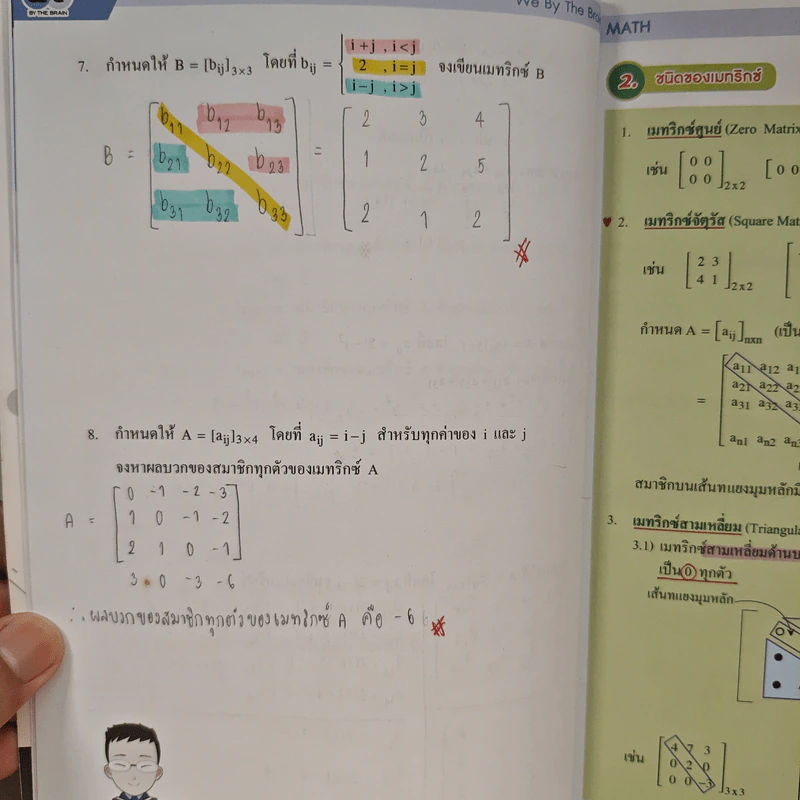 BY THE BRAIN
We By The Brain
7. กำหนดให้ B = [bij]3×3 โดยที่ bij = { i+j , i<j
2 , i=j
i−j , i>j
จงเขียนเมทริกซ์ B
B = [ b11 b12 b13 ] = [ 2 3 4 ]
[ b21 b22 b23 ] [ 1 2 5 ]
[ b31 b32 b33 ] [ 2 1 2 ]
8. กำหนดให้ A = [aij]3×4 โดยที่ aij = i−j สำหรับทุกค่าของ i และ j
จงหาผลบวกของสมาชิกทุกตัวของเมทริกซ์ A
A = [ 0 -1 -2 -3 ]
[ 1 0 -1 -2 ]
[ 2 1 0 -1 ]
3 0 -3 -6
∴ ผลบวกของสมาชิกทุกตัวของเมทริกซ์ A คือ -6
MATH
2. ชนิดของเมทริกซ์
1. เมทริกซ์ศูนย์ (Zero Matrix
เช่น [ 0 0 ] [ 0 0
[ 0 0 ]2x2
2. เมทริกซ์จัตุรัส (Square Mat
เช่น [ 2 3 ]
[ 4 1 ]2x2
กำหนด A = [aij]nxn (เป็น
a11 a12
a21 a22
= a31 a32
an1 an2
สมาชิกบนเส้นทแยงมุมหลัก
3. เมทริกซ์สามเหลี่ยม (Triangula
3.1) เมทริกซ์สามเหลี่ยมด้านบ
เป็น 0 ทุกตัว
เส้นทแยงมุมหลัก
เช่น [ 4 7 3 ]
[ 0 2 0 ]
[ 0 0 -3 ]3x3